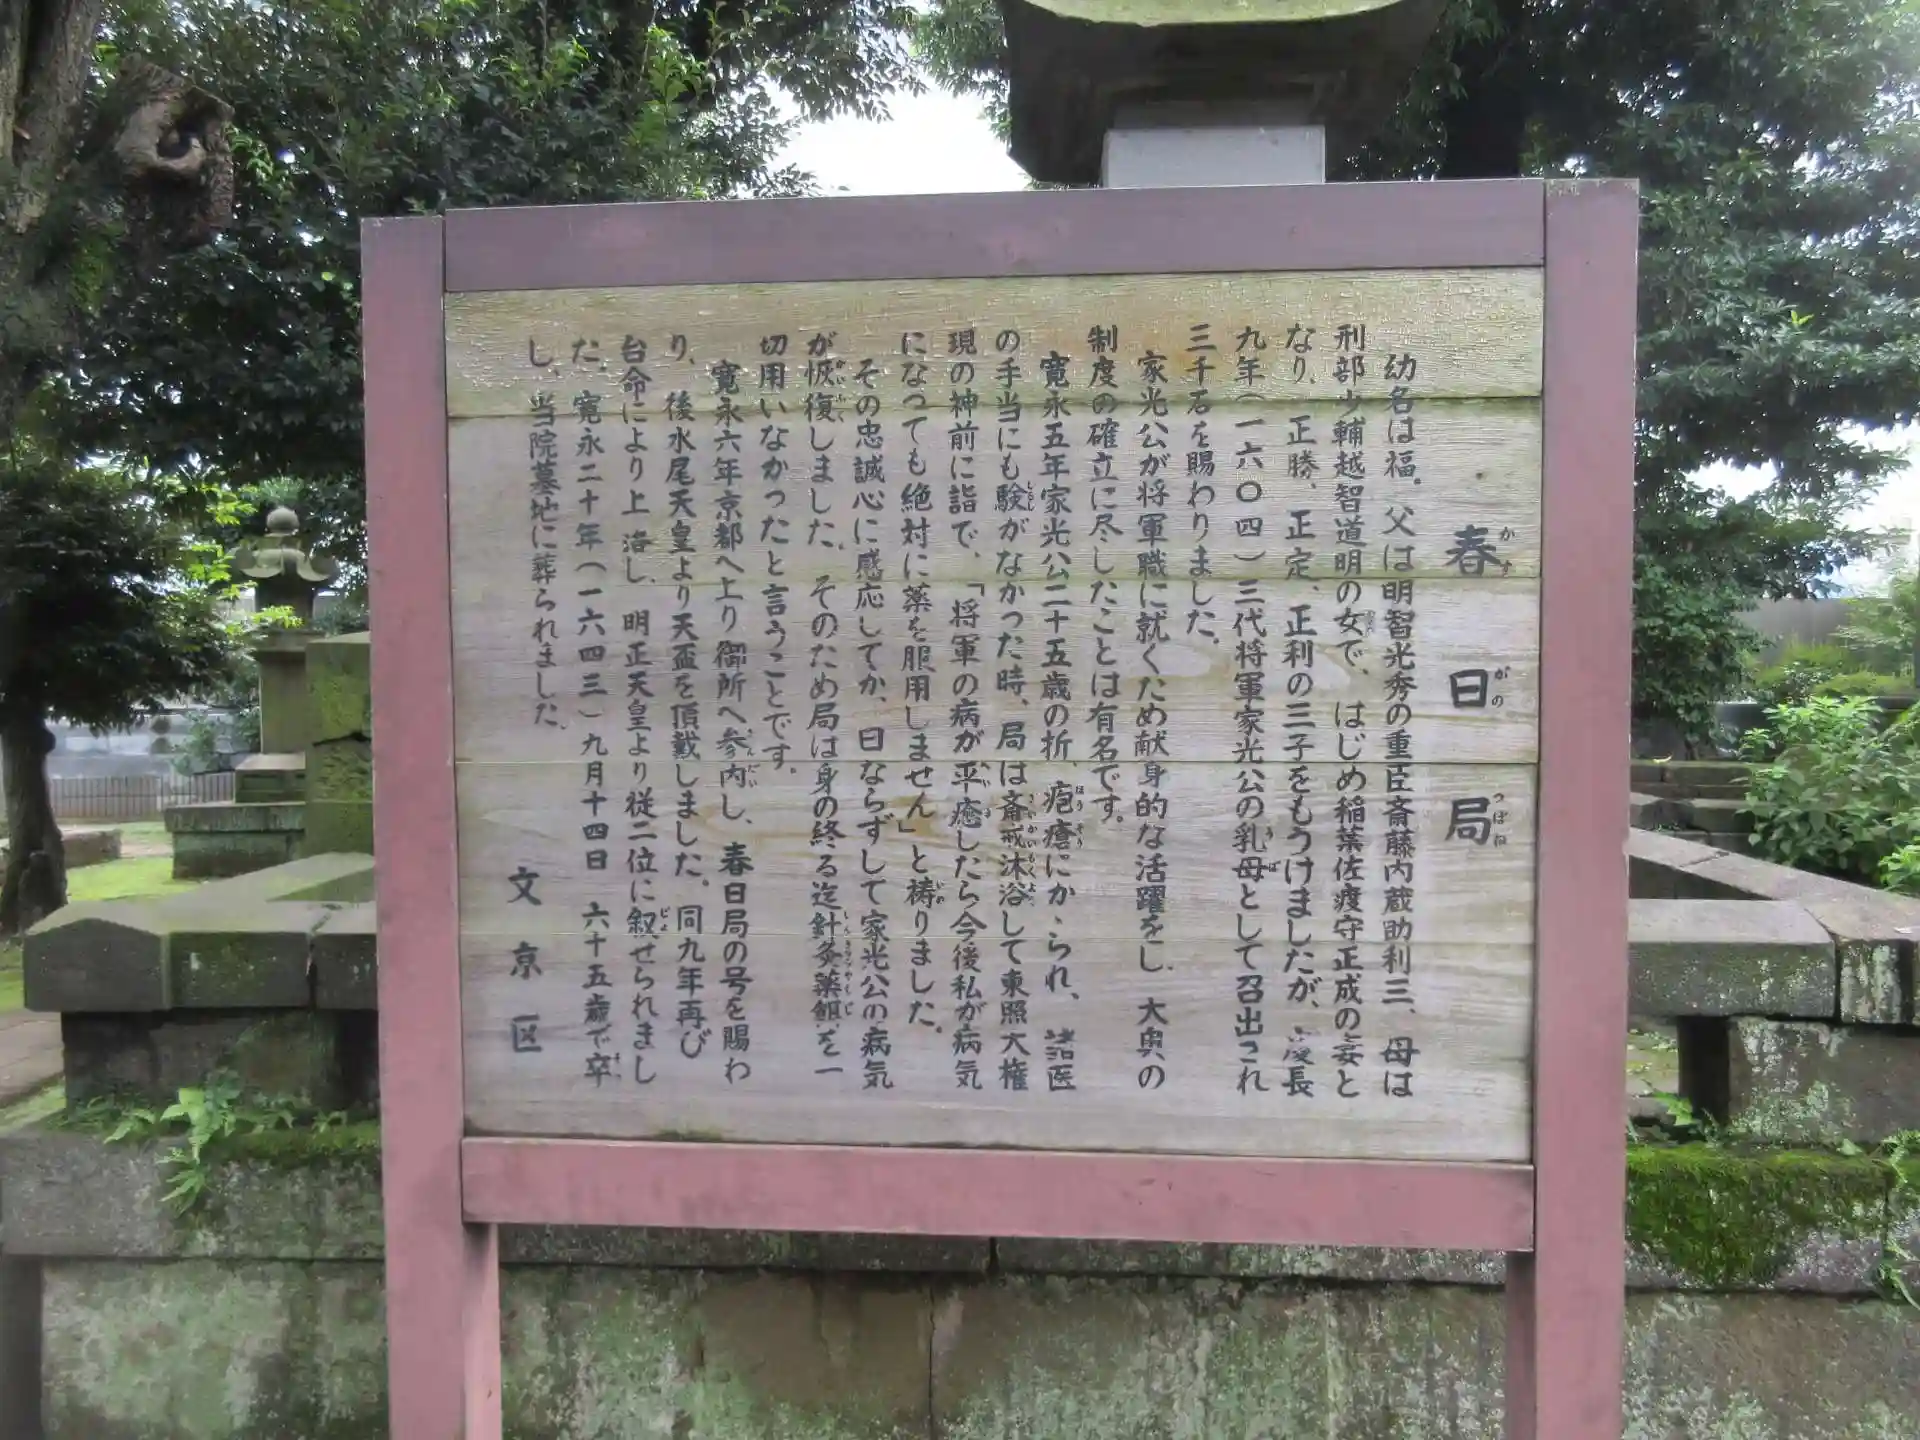 春日局
幼名は福。父は明智光秀の重臣斎藤内蔵助利三、母は
刑部少輔越智道明の女で、はじめ稲葉佐渡守正成の妾と
なり、正勝、正定、正利の三子をもうけましたが、慶長
九年（一六〇四）三代将軍家光公の乳母として召出され
三千石を賜わりました。
家光公が将軍職に就くため献身的な活躍をし、大奥の
制度の確立に尽したことは有名です。
寛永五年家光公二十五歳の折、疱瘡にかゝられ、諸医
の手当にも験がなかった時、局は斎戒沐浴して東照大権
現の神前に詣で、「将軍の病が平癒したら今後私が病気
になっても絶対に薬を服用しません」と祷りました。
その忠誠心に感応してか、日ならずして家光公の病気
が恢復しました。そのため局は身の終る迄針灸薬餌を一
切用いなかったと言うことです。
寛永六年京都へ上り御所へ参内し、春日局の号を賜わ
り、後水尾天皇より天盃を頂戴しました。同九年再び
台命により上洛し、明正天皇より従二位に叙せられまし
た。寛永二十年（一六四三）九月十四日　六十五歳で卒
し、当院墓地に葬られました。
文京区